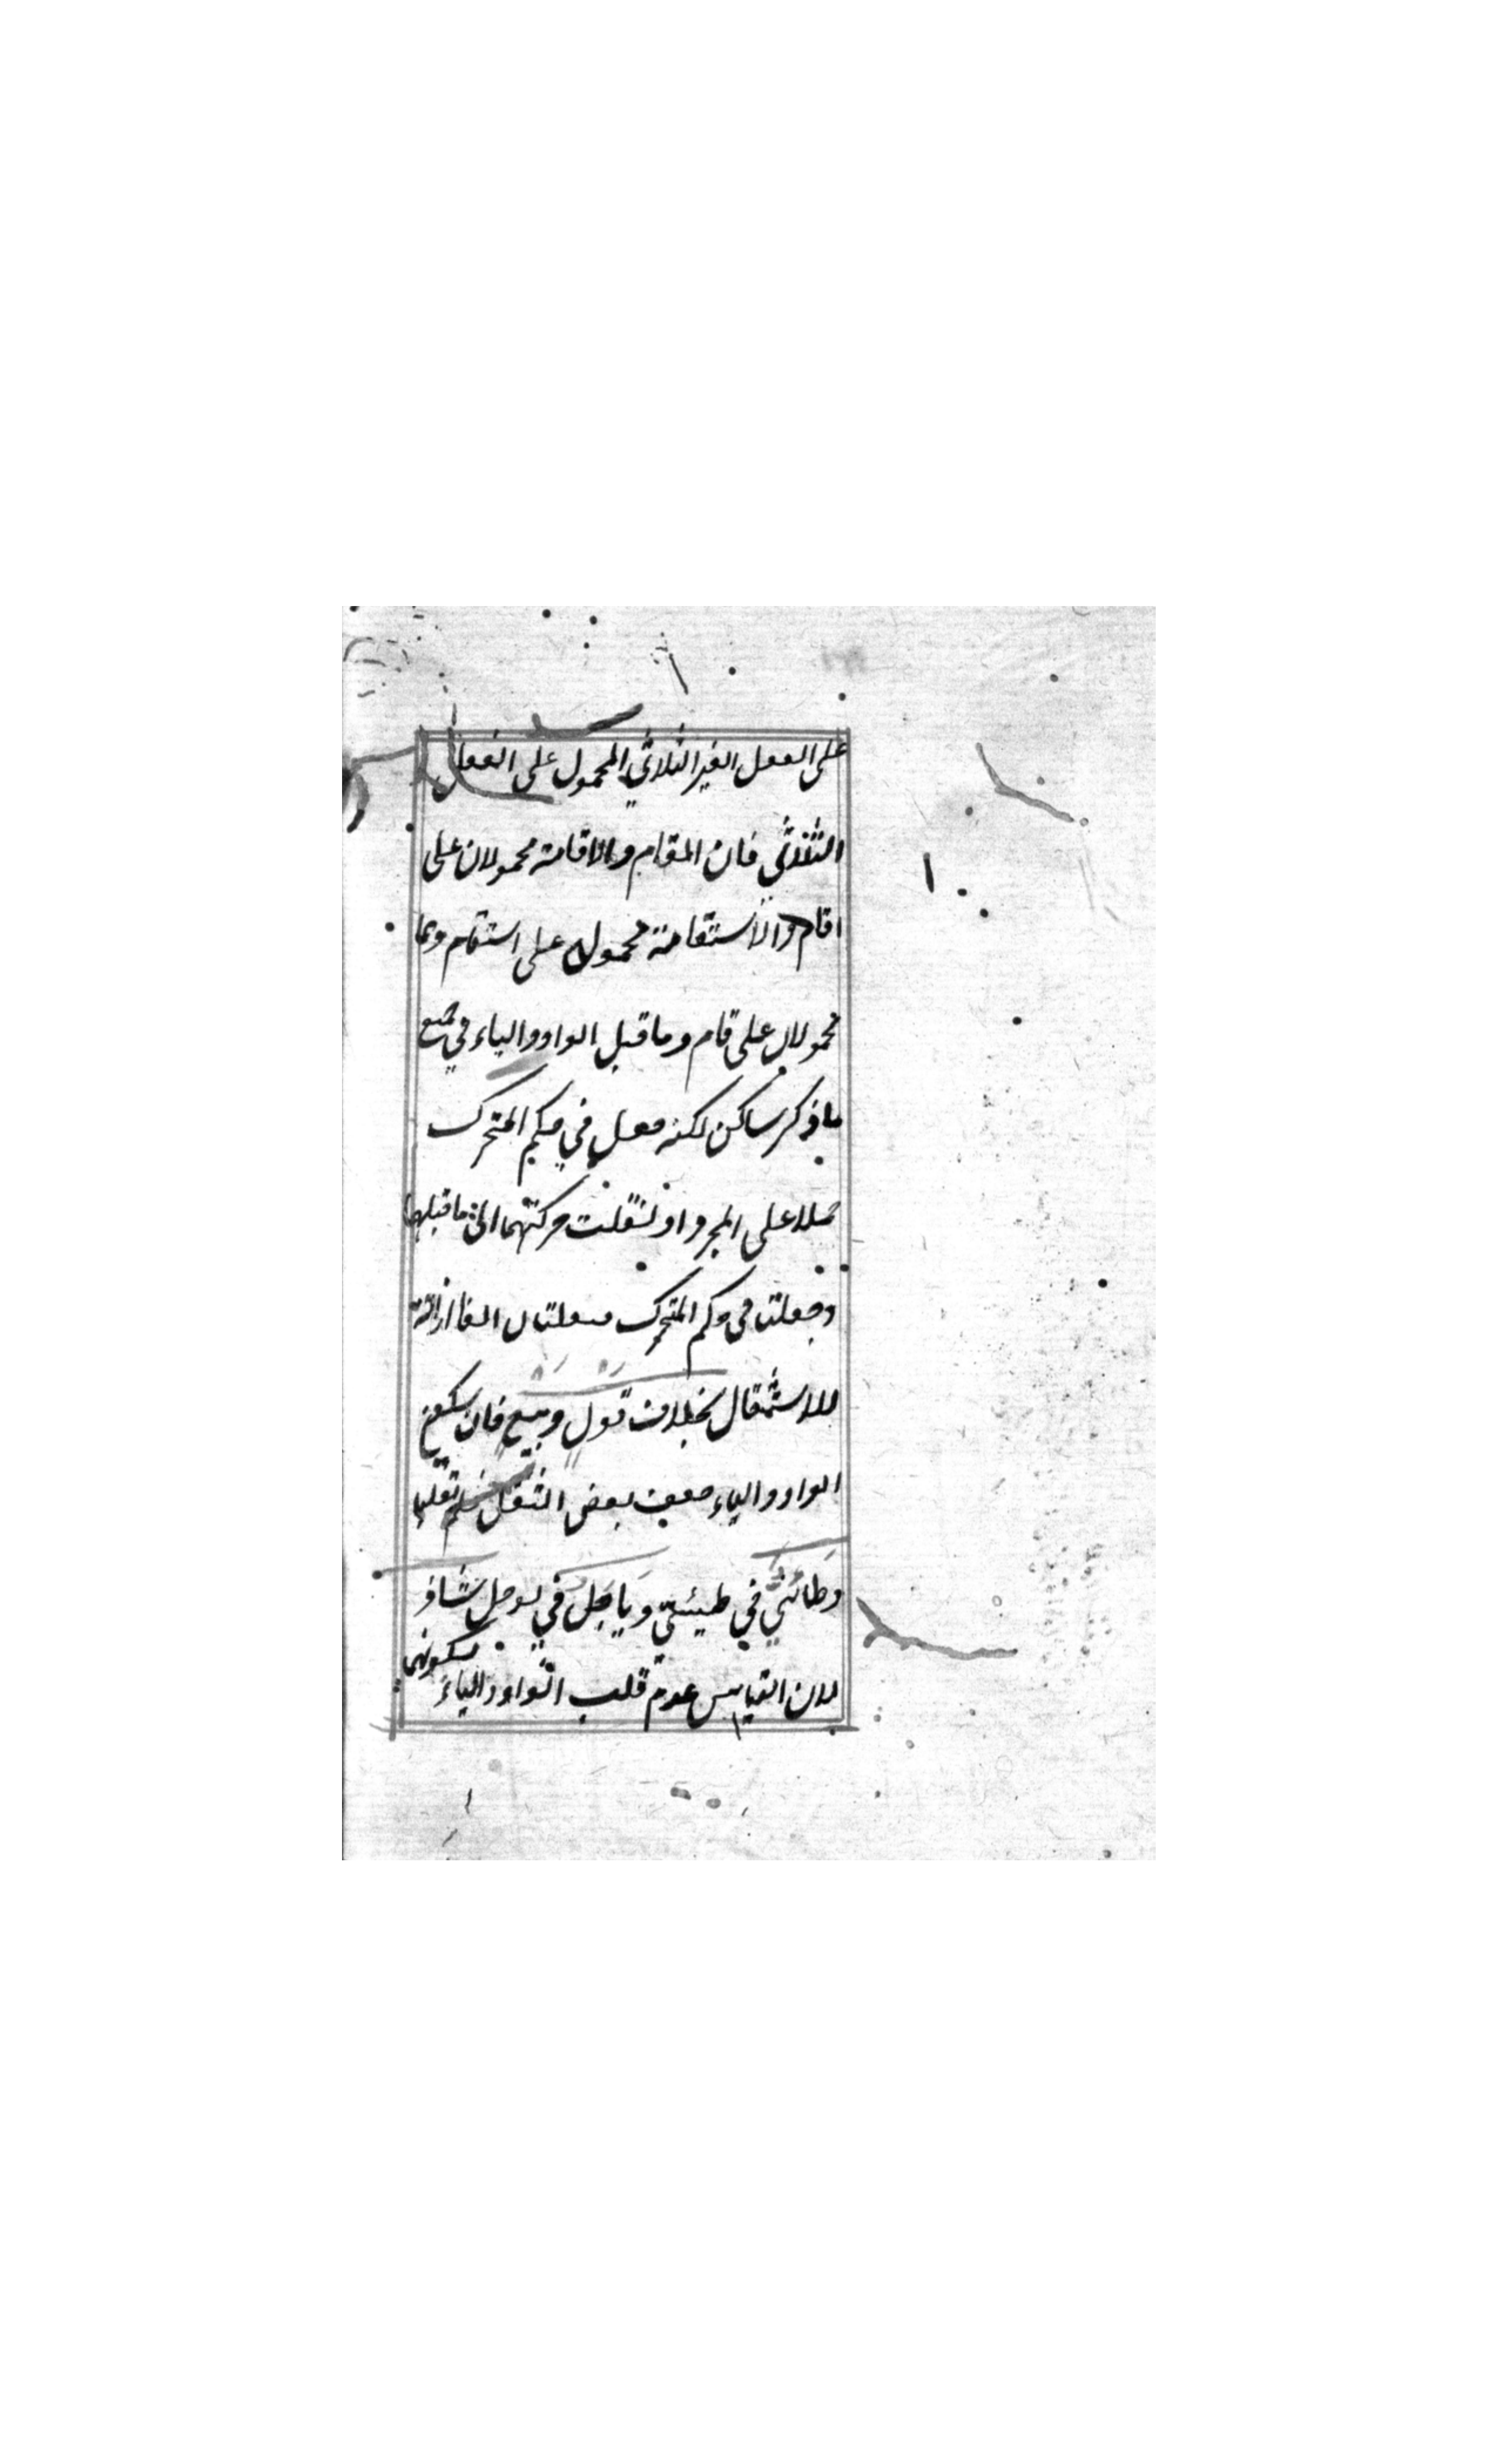 على الفعل الغير الثلاثي المحمول على الفعل
الثلاثي فان المقام والاقامة محمولان على
اقام والاستقامة محمول على استقام وهما
محمولان على قام وما قبل الواو والياء في جميع
ما ذكر ساكن لكنه جعل في حكم المتحرك
حملا على المجرد او نقلت حركتهما الى ما قبلهما
وجعلتا في حكم المتحرك الفا
للاستثقال بخلاف قول وبيع فان سكون
الواو والياء بعض الثقل فلم تقلبا
وطائي في طيئي وياجل في يوجل شاذ
لان القياس عدم قلب الواو والياء
لسكونهما